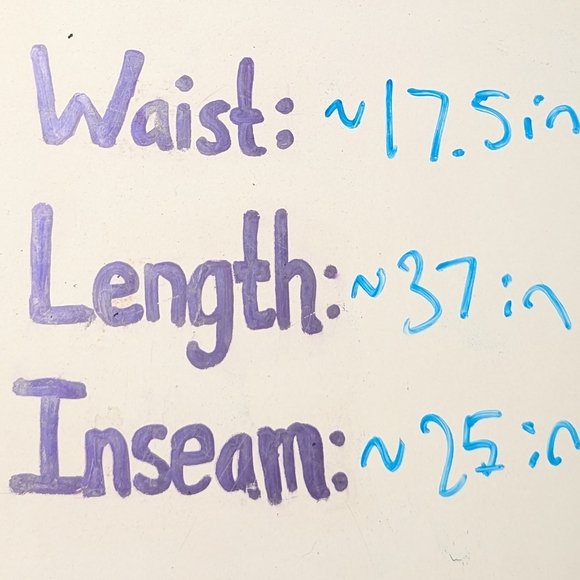 Waist: ~17.5in
Length: ~37in
Inseam: ~25in